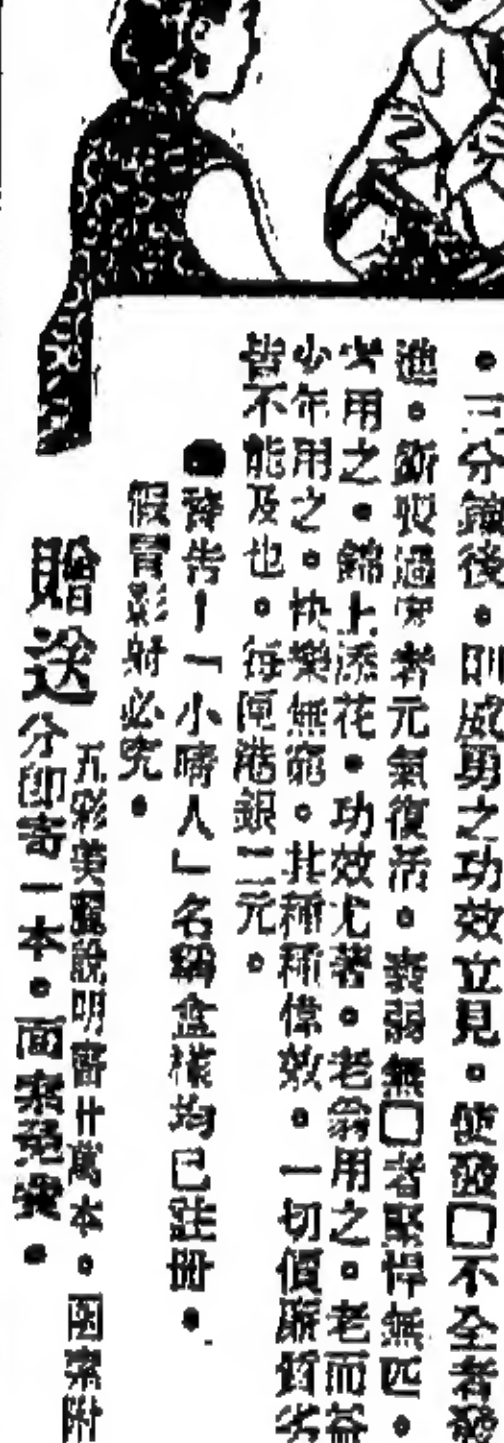 。三分鐘後。剛威勇之功效立見。使發□不全者發
進。斲喪過甚者元氣復活。衰弱無□者堅悍無匹。
者用之。錦上添花。功效尤著。老翁用之。老而益
少年用之。快樂無窮。其種種偉效。一切價廉質劣
皆不能及也。每匣港銀二元。
●警告!「小情人」名稱盒樣均已註冊。
假冒影射必究。
贈送 五彩美麗說明書廿萬本。函索附
分郵寄一本。面索免費。